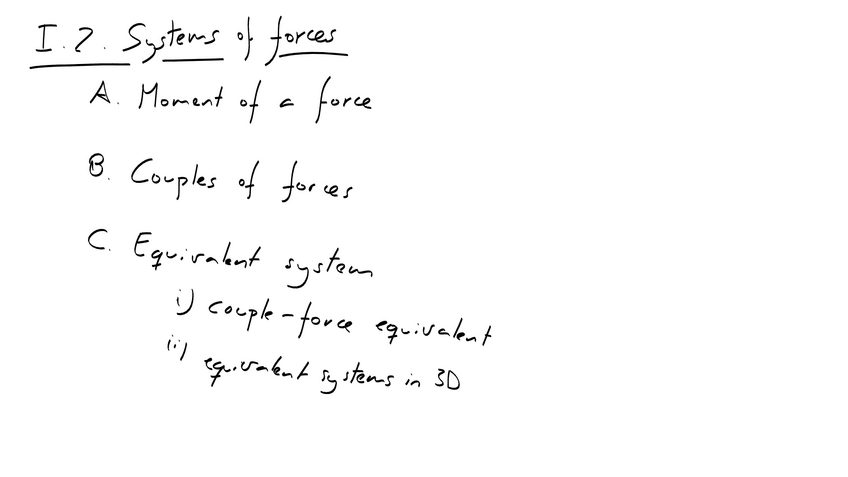 I.2. Systems of forces
A. Moment of a force
B. Couples of forces
C. Equivalent system
i) couple-force equivalent
ii) equivalent systems in 3D